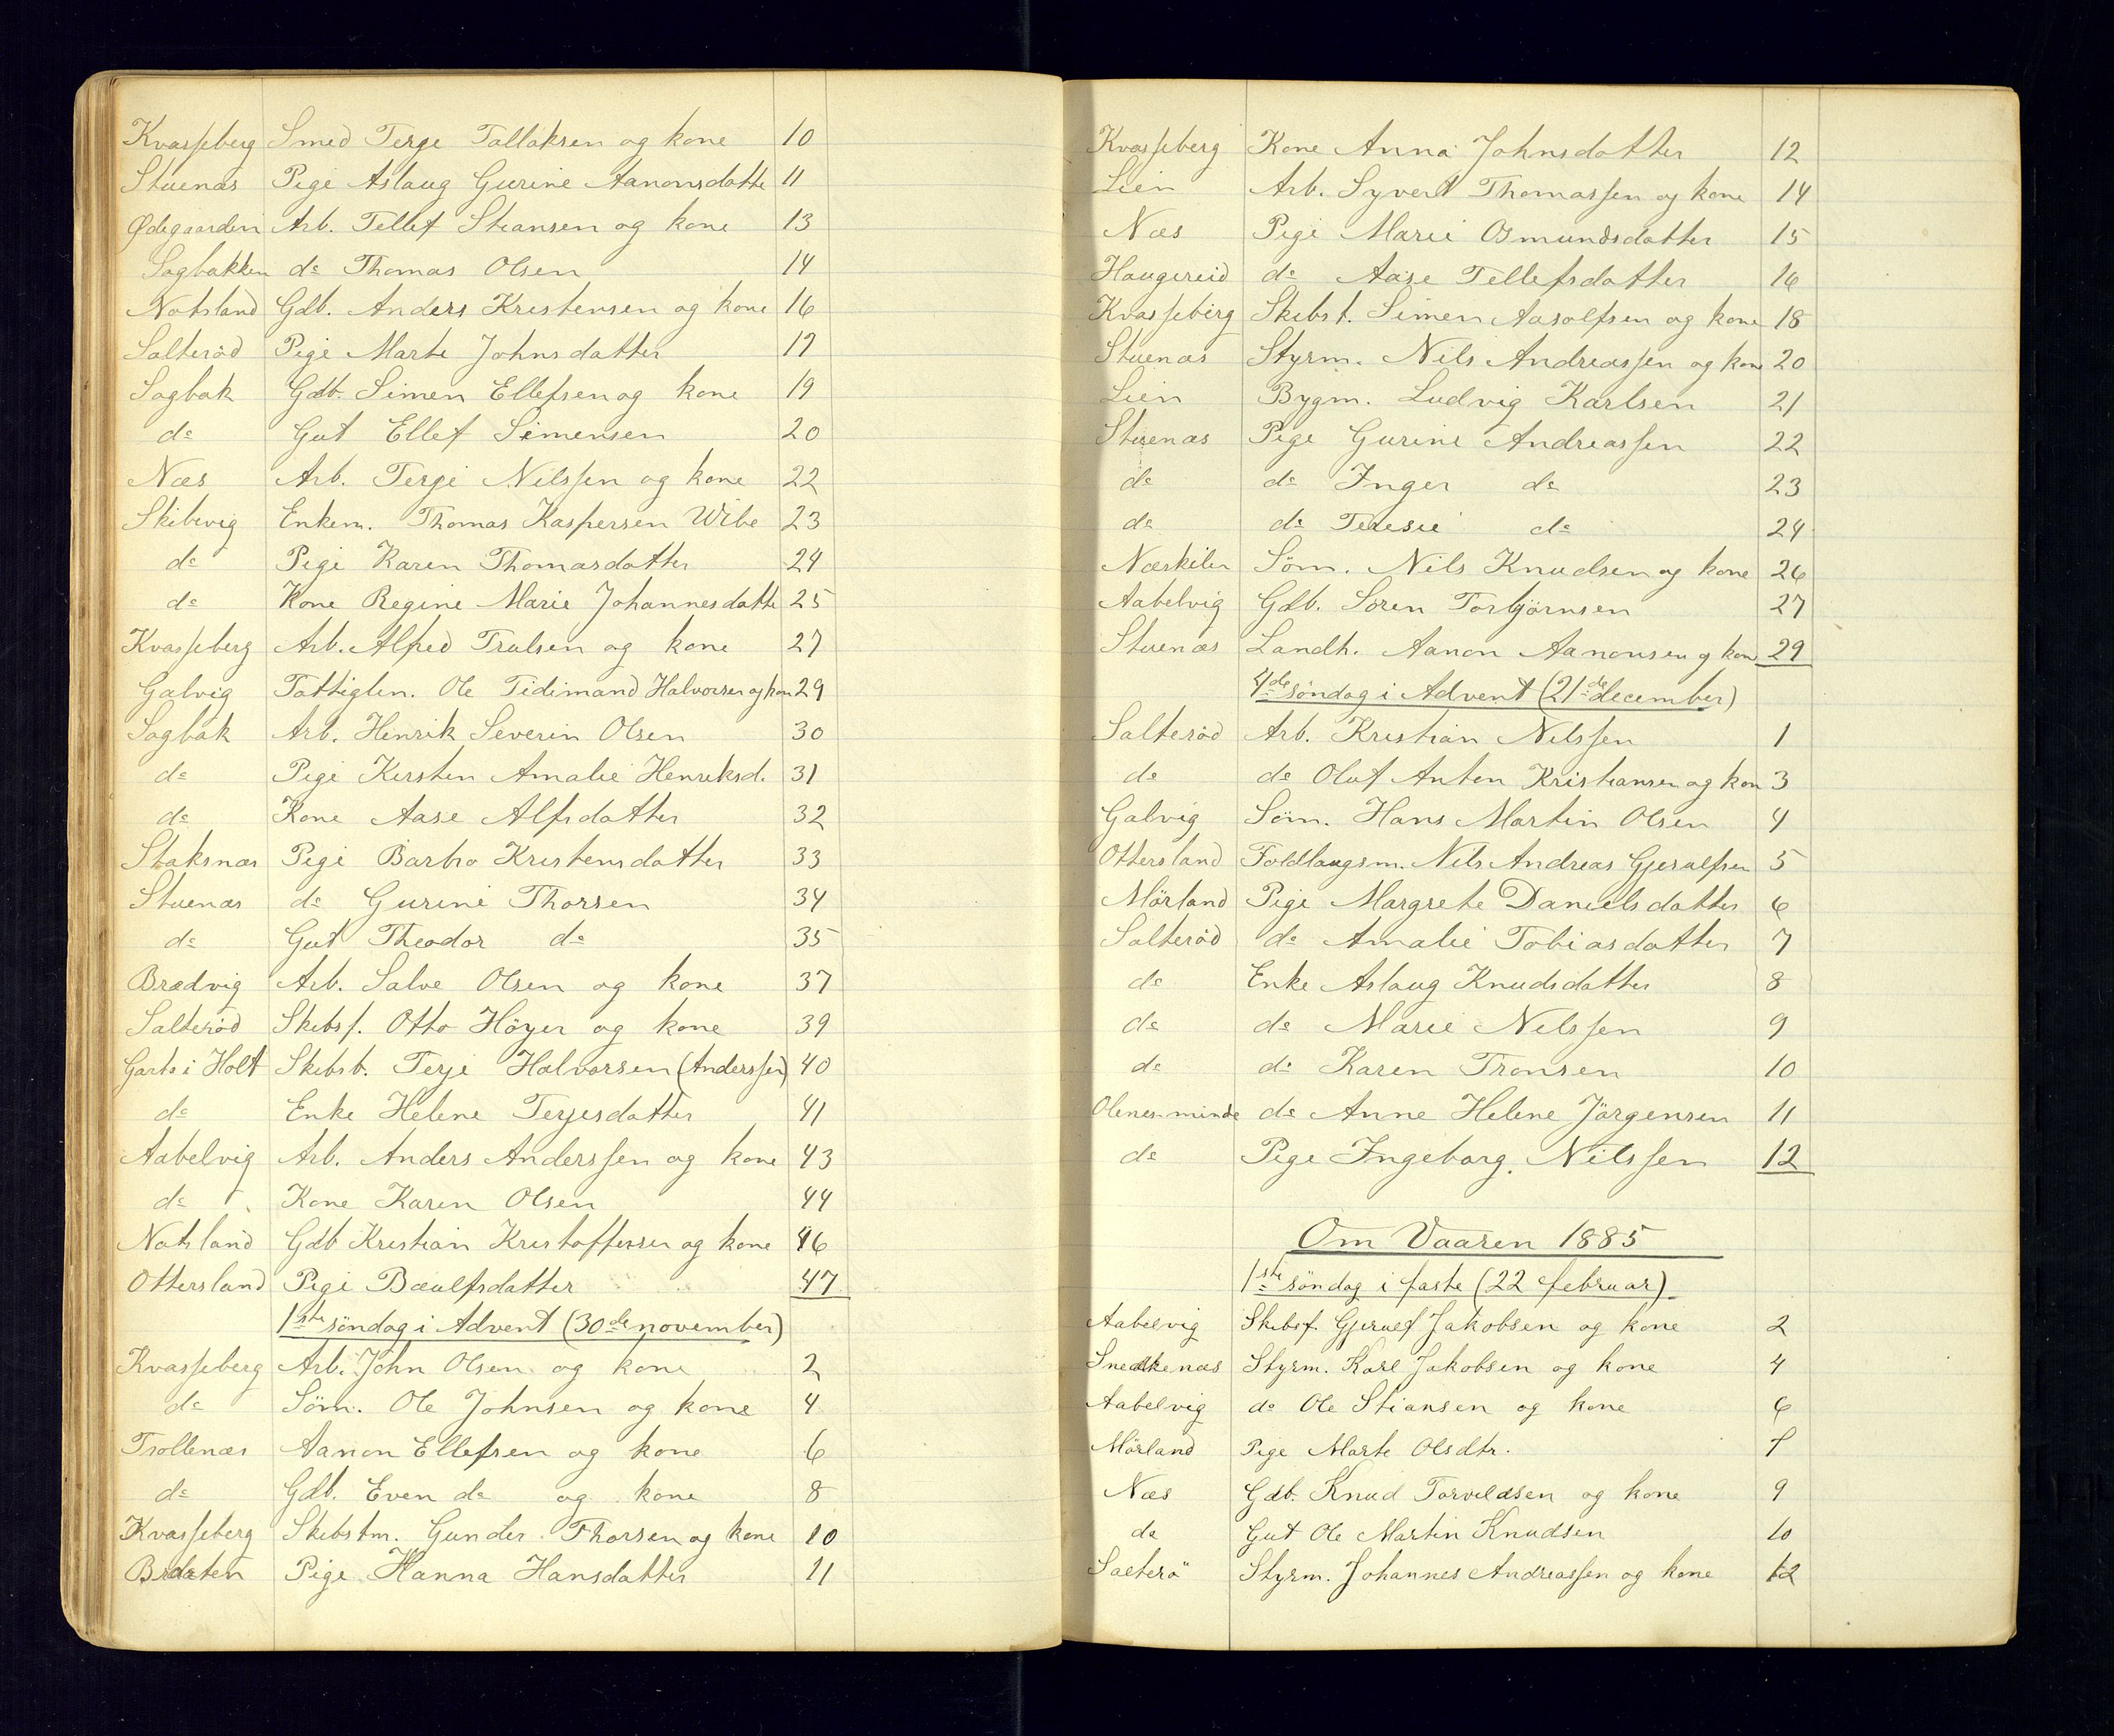 Kvasseberg Smed Terge Tallaksen og kone 10
Stuenæs Pige Aslaug Gurine Aanonsdatte 11
Ødegaarden Arb. Tellef Stiansen og kone 13
Sagbakken do Thomas Olsen 14
Natsland Gdb. Anders Kristensen og kone 16
Salterød Pige Marte Johnsdatter 17
Sagbak Gdb. Simen Ellefsen og kone 19
do Gut Ellef Simensen 20
Næs Arb. Terje Nilssen og kone 22
Skibvig Enkem. Thomas Kaspersen Wibe 23
do Pige Karen Thomasdatter 24
do Kone Regine Marie Johannesdatte 25
Kvasseberg Arb. Alfred Trulsen og kone 27
Galvig Fattiglem. Ole Tidimand Halvorsen og kon 29
Sagbak Arb. Henrik Severin Olsen 30
do Pige Kirsten Amalie Henriksd. 31
do Kone Aase Alfsdatter 32
Staksnæs Pige Barbro Kristensdatter 33
Stuenæs do Gurine Thorsen 34
do Gut Theodor do 35
Bradvig Arb. Salve Olsen og kone 37
Salterød Skibsf. Otto Höyer og kone 39
Garta i Holt Skibsb. Terje Halvorsen (Anderssen) 40
do Enke Helene Terjesdatter 41
Aabelvig Arb. Anders Anderssen og kone 43
do Kone Karen Olsen 44
Natsland Gdb Kristian Kristoffersen og kone 46
Ottersland Pige Bæulfsdatter 47
1ste söndag i Advent (30de november)
Kvasseberg Arb. John Olsen og kone 2
do Söm. Ole Johnsen og kone 4
Trollenæs Aanon Ellefsen og kone 6
do Gdb. Even do og kone 8
Kvasseberg Skibstm. Gunder Thorsen og kone 10
Braaten Pige Hanna Hansdatter 11
Kvasseberg Kone Anna Johnsdatter 12
Lien Arb. Syvert Thomassen og kone 14
Næs Pige Marie Osmundsdatter 15
Haugereid do Aase Tellefsdatter 16
Kvasseberg Skibst. Simen Aasolfsen og kone 18
Stuenæs Styrm. Nils Andreassen og kon 20
Lien Bygm. Ludvig Karlsen 21
Stuenæs Pige Gurine Andreassen 22
do do Inger do 23
do do Teresie do 24
Næskilen Söm. Nils Knudsen og kone 26
Aabelvig Gdb. Sören Torbjörnsen 27
Stuenæs Landh. Aanon Aanonsen og kon 29
4de söndag i Advent (21de december)
Salteröd Arb. Kristian Nilssen 1
do do Oluf Anton Kristiansen og kon 3
Galvig Söm. Hans Martin Olsen 4
Ottersland Foldlaugsm. Nils Andreas Gjerulfsen 5
Mörland Pige Margrete Danielsdatter 6
Salteröd do Amalie Tobiasdatter 7
do Enke Aslaug Knudsdatter 8
do do Marie Nilssen 9
do do Karen Tronsen 10
Olenes-minde do Anne Helene Jörgensen 11
do Pige Ingeborg Nilssen 12
Om Vaaren 1885
1ste söndag i faste (22 februar)
Aabelvig Skibsf. Gjerulf Jakobsen og kone 2
Snedkenæs Styrm. Karl Jakobsen og kone 4
Aabelvig do Ole Stiansen og kone 6
Mörland Pige Marte Olsdtr. 7
Næs Gdb. Knud Torvildsen og kone 9
do Gut Ole Martin Knudsen 10
Salterö Styrm. Johannes Andreassen og kone 12